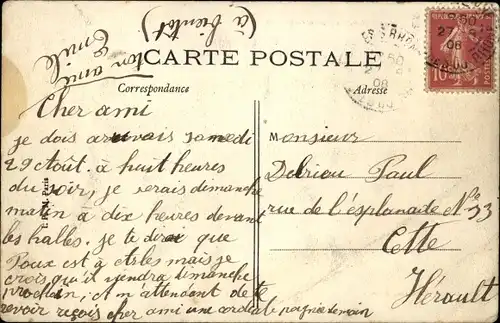 (à bientot)
ton ami
Emile
CARTE POSTALE
Correspondance
Adresse
Cher ami
je dois samedi
29 Août. à huit heures
du soir, je serais dimanche
matin à dix heures devant
les halles. je te dirai que
Poux est à Arles mais je
crois qu'il viendra dimanche
prochain, et m'attendant de te
revoir reçois cher ami une cordiale poignée de main
Monsieur
Delrieu Paul
rue de l'esplanade N° 33
Cette
Hérault
10
08
08